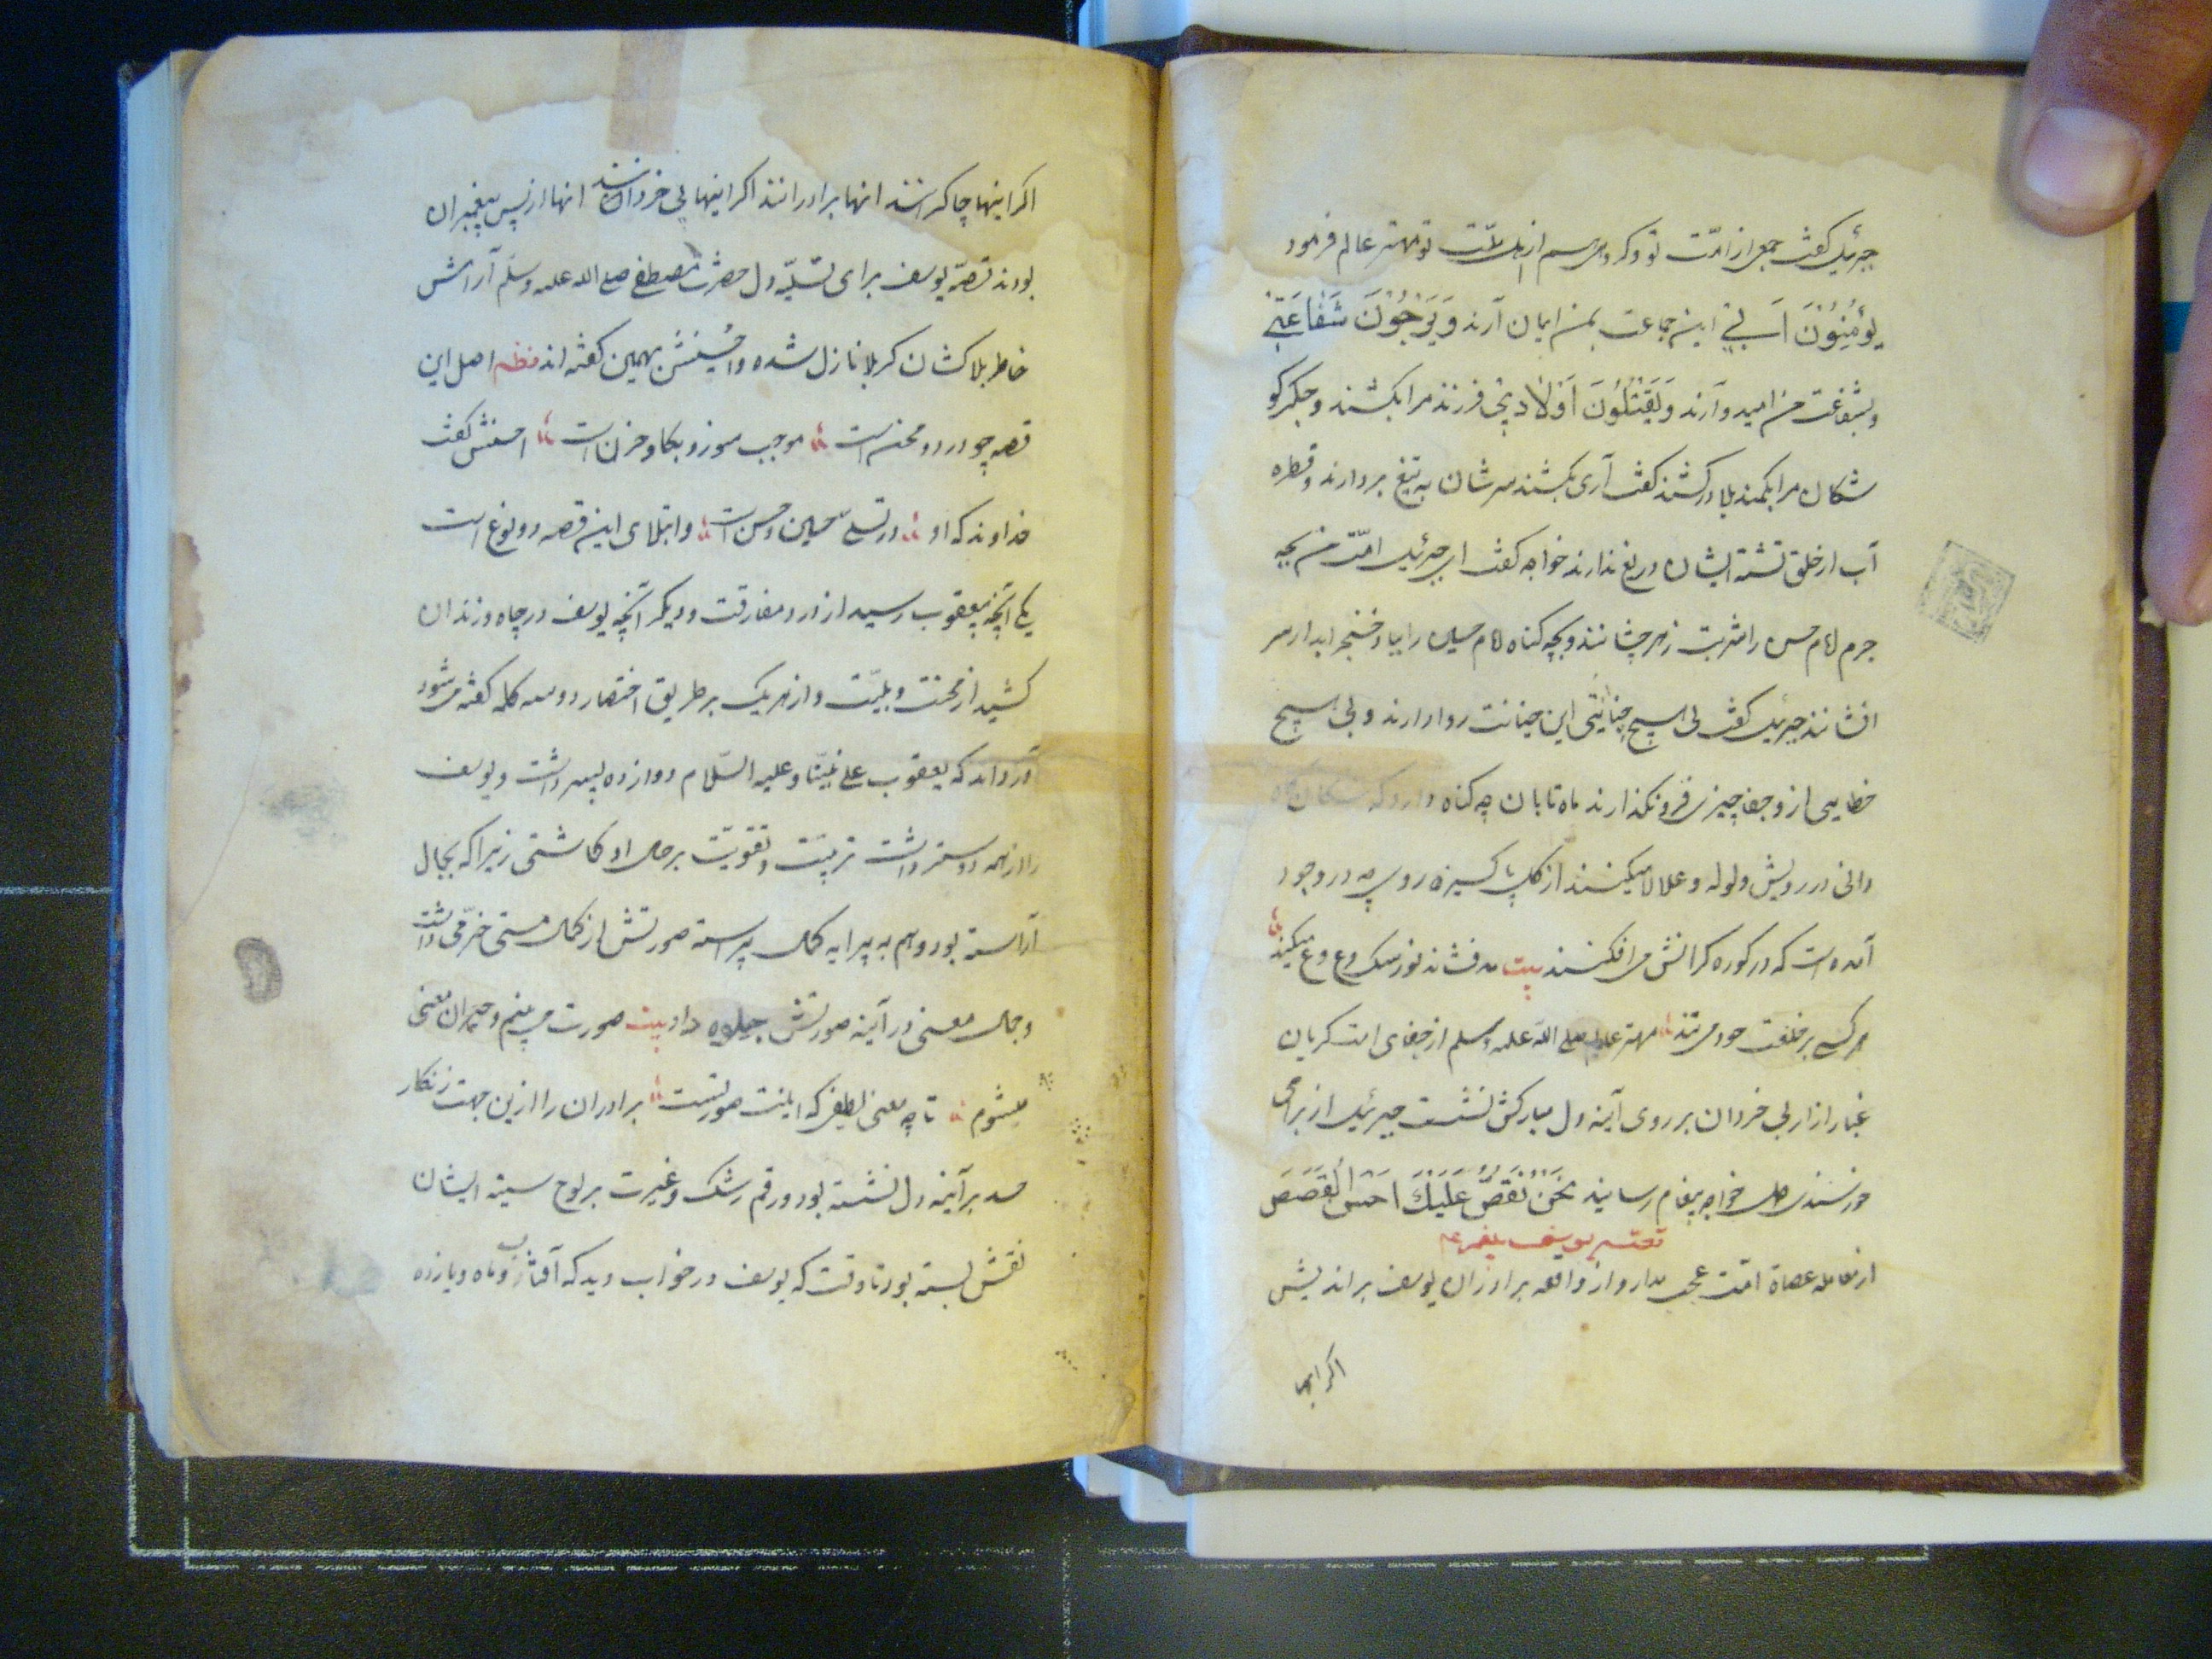 جبرئیل گفت جمعی از امّت تو و گروهی هم از اهل ملّت تو مهتر عالم فرمود
یُؤْمِنُوْنَ اَبِیْ این جماعت بمن ایمان آرند وَیَرْجُوْنَ شَفَاعَتِیْ
و بشفاعت من امید دارند وَیَقْتُلُوْنَ اَوْلَادِیْ فرزند مرا بکشند و جکر کو
شکان مرا بکمند بلا درکشند کفت آری بکشند سرشان به تیغ بردارند و قطره
آب از حلق تشنه ایشان دریغ ندارند خواجه کفت ای جبرئیل امّت من بچه
جرم امام حسن را شربت زهر چشانند و بچه کناه امام حسین را بباد خنجر ابدار سر
افشانند جبرئیل کفت بی هیچ جنایتی این خیانت روا دارند و بی هیچ
خطایی از و جفا چیزی فرو نکذارند ماه تابان چه کناه دارد که سکان
دانی در رویش ولوله و علالا میکنند از کل پاکیزه روی چه در وجود
آمده است که در کوره کرا تش می افکنند بیت مه فشاند نور سک وع وع میکند
هر کسی بر خلقت خود می تند مهتر عالم صلی الله علیه وسلم از جفای امت کریان
غبار ازار بی خردان بر روی آینه دل مبارکش نشست جبرئیل از برای
خورسندی دل خواجه پیغام رسانید نَحْنُ نَقُصُّ عَلَیْكَ اَحْسَنَ الْقَصَصِ
قصه یوسف پیغمبر عم
از معامله عصاة امّت عجب مدار و از واقعه برادران یوسف براندیش
اکر اینها
اکر اینها چاکرانند انها برادرانند اکر اینها بی خردانند انها از پس پیغمبران
بودند قصّه یوسف برای تسلیه دل حضرت مصطفی صلی الله علیه وسلّم آرامش
خاطر بلاکشان کربلا نازل شده و احسنش بهمین کفته اند نظم اصل این
قصه چو درد و محن است موجب سوز و بکا و حزن است احسنش کفت
خداوند که او در تسلّی حسین و حسن است و ابتلای این قصه دو نوع است
یکی آنچه بیعقوب رسید از درد مفارقت و دیکر آنچه یوسف در چاه و زندان
کشید از محنت و بلیّت و از هر یک بر طریق اختصار دو سه کلمه کفته می شود
آورده اند که یعقوب علی نبیّنا و علیه السّلام دوازده پسر داشت و یوسف
را از همه دوستر داشت تربیت و تقویّت بر حال او کماشتی زیرا که بجمال
آراسته بود و هم به پیرایه کمال پیراسته صورتش از کمال مستی خبر می داشت
و جمال معنی در آینه صورتش جلوه داد بیت صورت می بینم و حیران معنی
میشوم تا چه معنی لطیفی که اینت صورتست برادران را ازین جهت زنکار
حسد بر آینه دل نشسته بود و رقم رشک و غیرت بر لوح سینه ایشان
نقش بسته بود تا وقت که یوسف در خواب دید که آفتاب و ماه و یازده